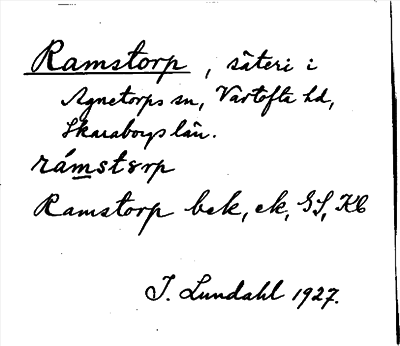 Ramstorp, säteri i
Agnetorps sn, Vartofta hd,
Skaraborgs län.
rámstɤrp
Ramstorp bek, ek, GS, Kb
I. Lundahl 1927.